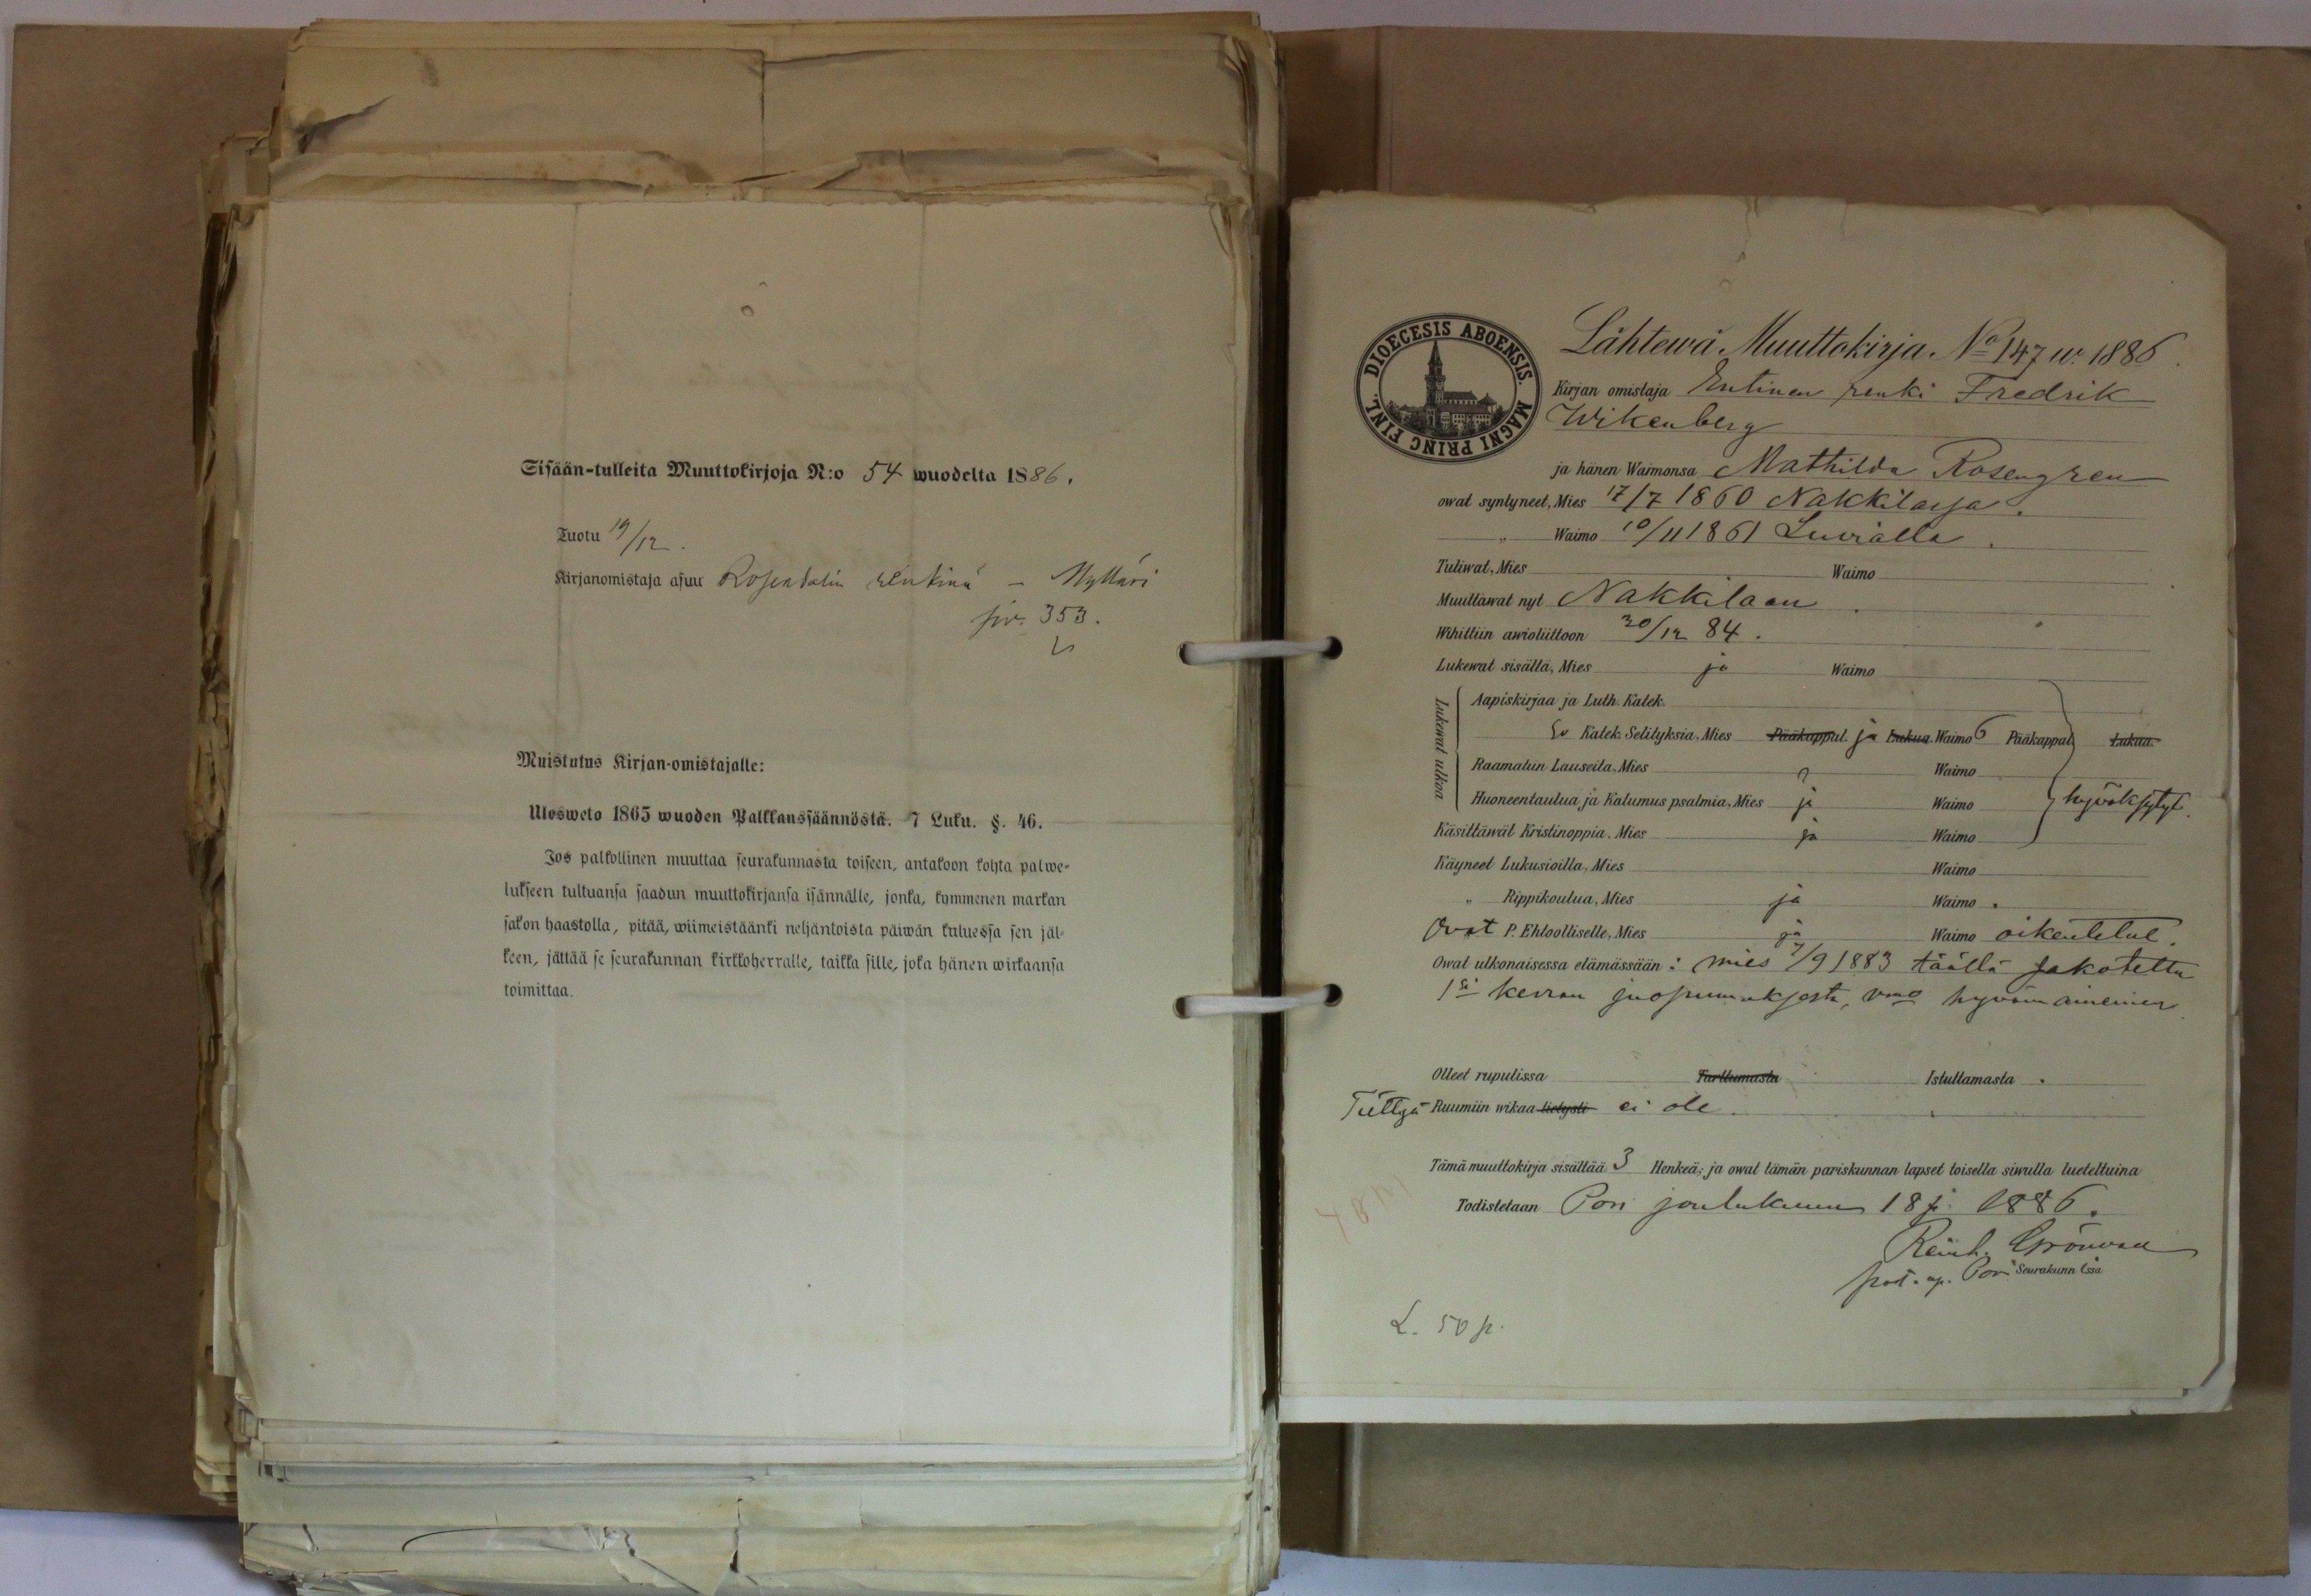 Sisään-tulleita Muuttokirjoja N:o 54 wuodelta 1886.
Tuotu 19/12.
Kirjanomistaja asuu Rosendalin renkinä – Mylläri
siv. 353.
Muistutus Kirjan-omistajalle:
Ulosweto 1865 wuoden Palkkanssäännöstä. 7 Luku. §. 46.
Jos palkollinen muuttaa seurakunnasta toiseen, antakoon kohta palwe-
lukseen tultuansa saadun muuttokirjansa isännälle, jonka, kymmenen markan
sakon haastolla, pitää, wiimeistäänki neljäntoista päiwän kuluessa sen jäl-
keen, jättää se seurakunnan kirkkoherralle, taikka sille, joka hänen wirkaansa
toimittaa.
DIOECESIS ABOENSIS. MAGNI PRINC FINL.
Lähtewä Muuttokirja. No 147 w. 1886.
Kirjan omistaja Entinen renki Fredrik
Wikenberg
ja hänen Waimonsa Mathilda Rosengren
owat syntyneet, Mies 17/7 1860 Nakkilassa.
„ Waimo 10/11 1861 Luvialla.
Tuliwat, Mies Waimo
Muuttawat nyt Nakkilaan.
Wihittiin awioliittoon 30/12 84.
Lukewat sisältä, Mies ja Waimo
Lukewat ulkoa
Aapiskirjaa ja Luth. Katek.
Sv Katek. Selityksiä, Mies Pääkappal. ja Lukua Waimo 6 Pääkappal Lukua.
Raamatun Lauseita, Mies ? Waimo
Huoneentaulua ja Katumus psalmia, Mies ja Waimo hyväksytyt.
Käsittäwät Kristinoppia, Mies ja Waimo
Käyneet Lukusioilla, Mies Waimo
„ Rippikoulua, Mies ja Waimo
Ovat P. Ehtoolliselle, Mies ja Waimo oikeutetut.
Owat ulkonaisessa elämässään: mies 7/9 1883 täällä sakotettu
1si kerran juopumuksesta, vmo hyvämaineinen
Olleet rupulissa Tarttumasta Istuttamasta
Tiettyä Ruumiin wikaa tietysti ei ole.
Tämä muuttokirja sisältää 3 Henkeä; ja owat tämän pariskunnan lapset toisella siwulla lueteltuina
Todistetaan Pori joulukuun 18 p. 1886.
Reinh. Grönvall
past. ap. Pori Seurakunnassa
L. 50 p.